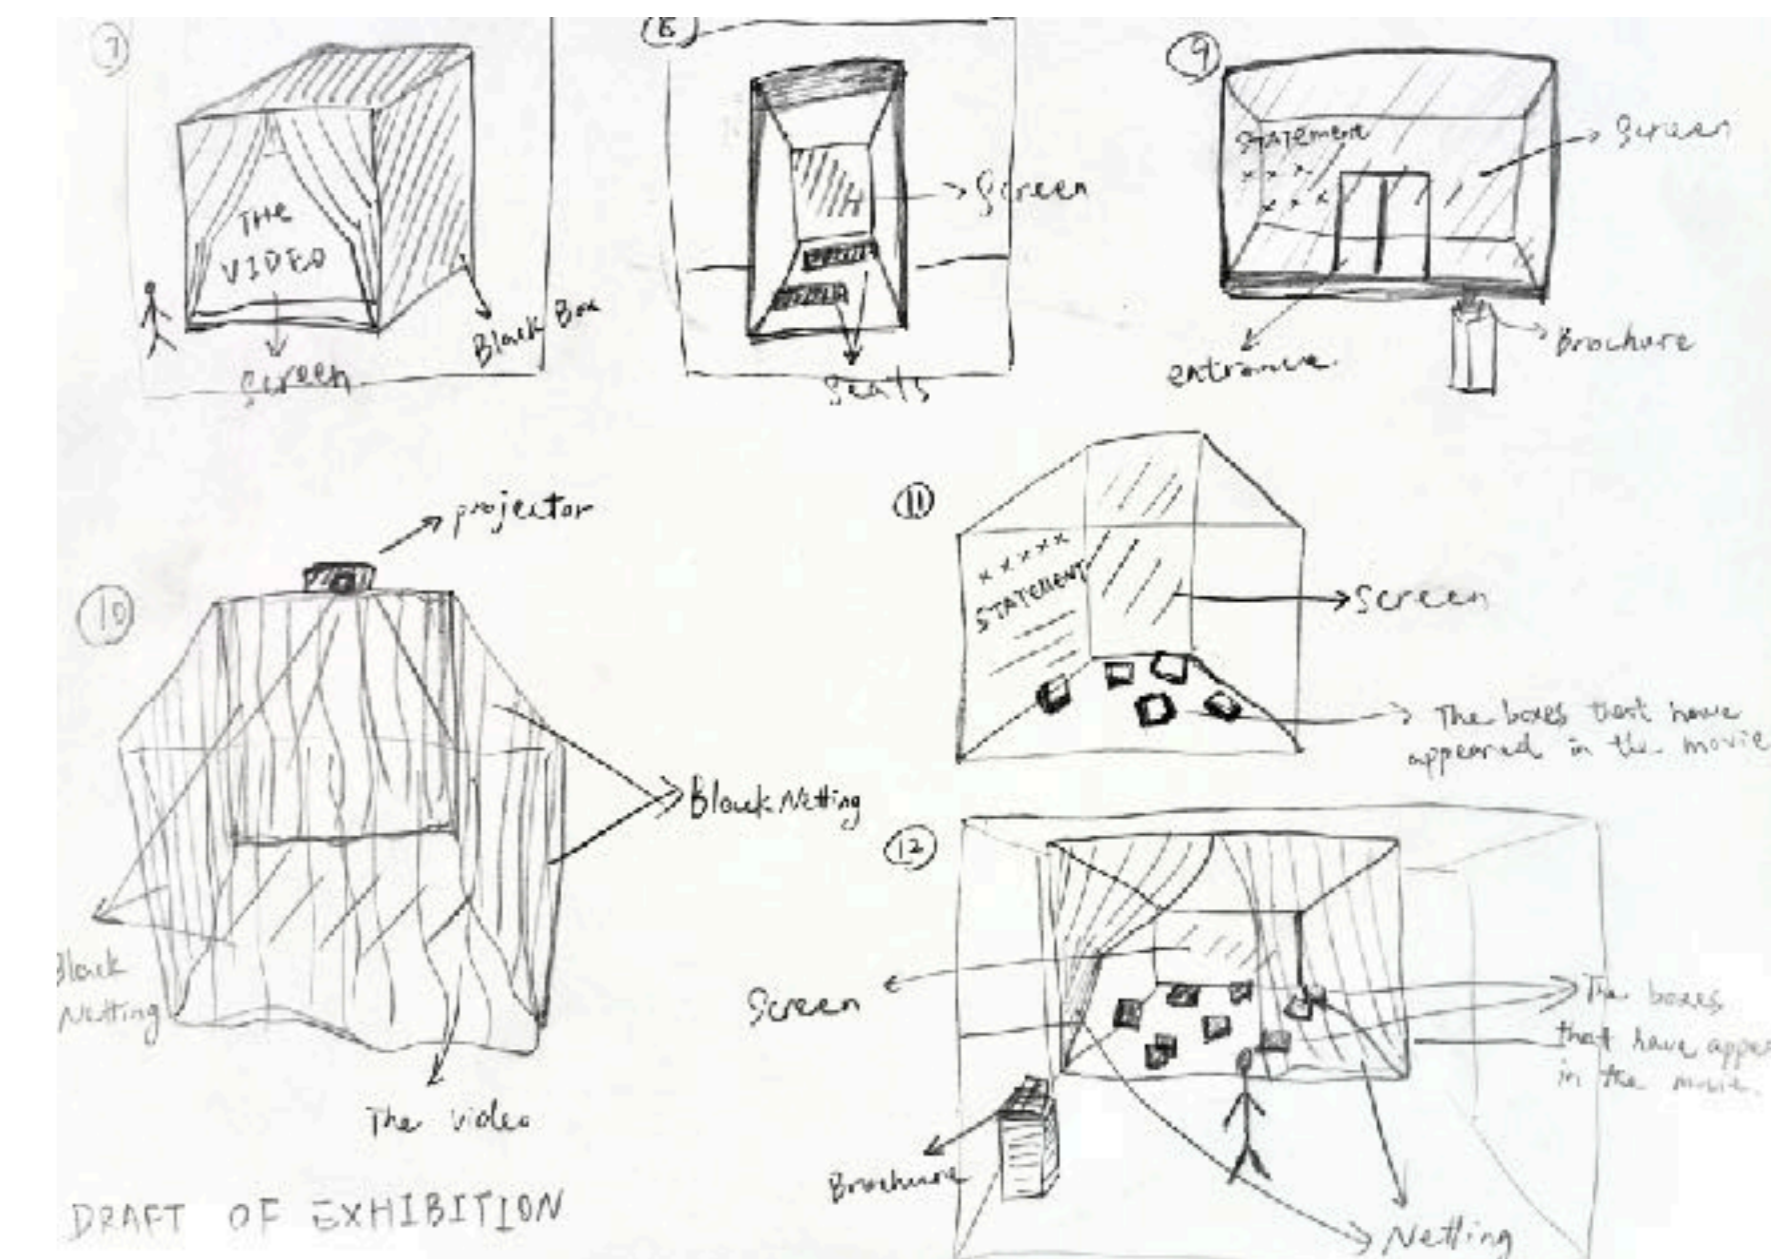 7
THE
VIDEO
Screen
Black Box
8
Screen
Seats
9
STATEMENT
x x x
x x x
Screen
entrance
Brochure
10
projector
Black Netting
Black
Netting
The video
11
x x x x x
STATEMENT
Screen
The boxes that have
appeared in the movie
12
Screen
The boxes
that have appea
in the movie.
Brochure
Netting
DRAFT OF EXHIBITION